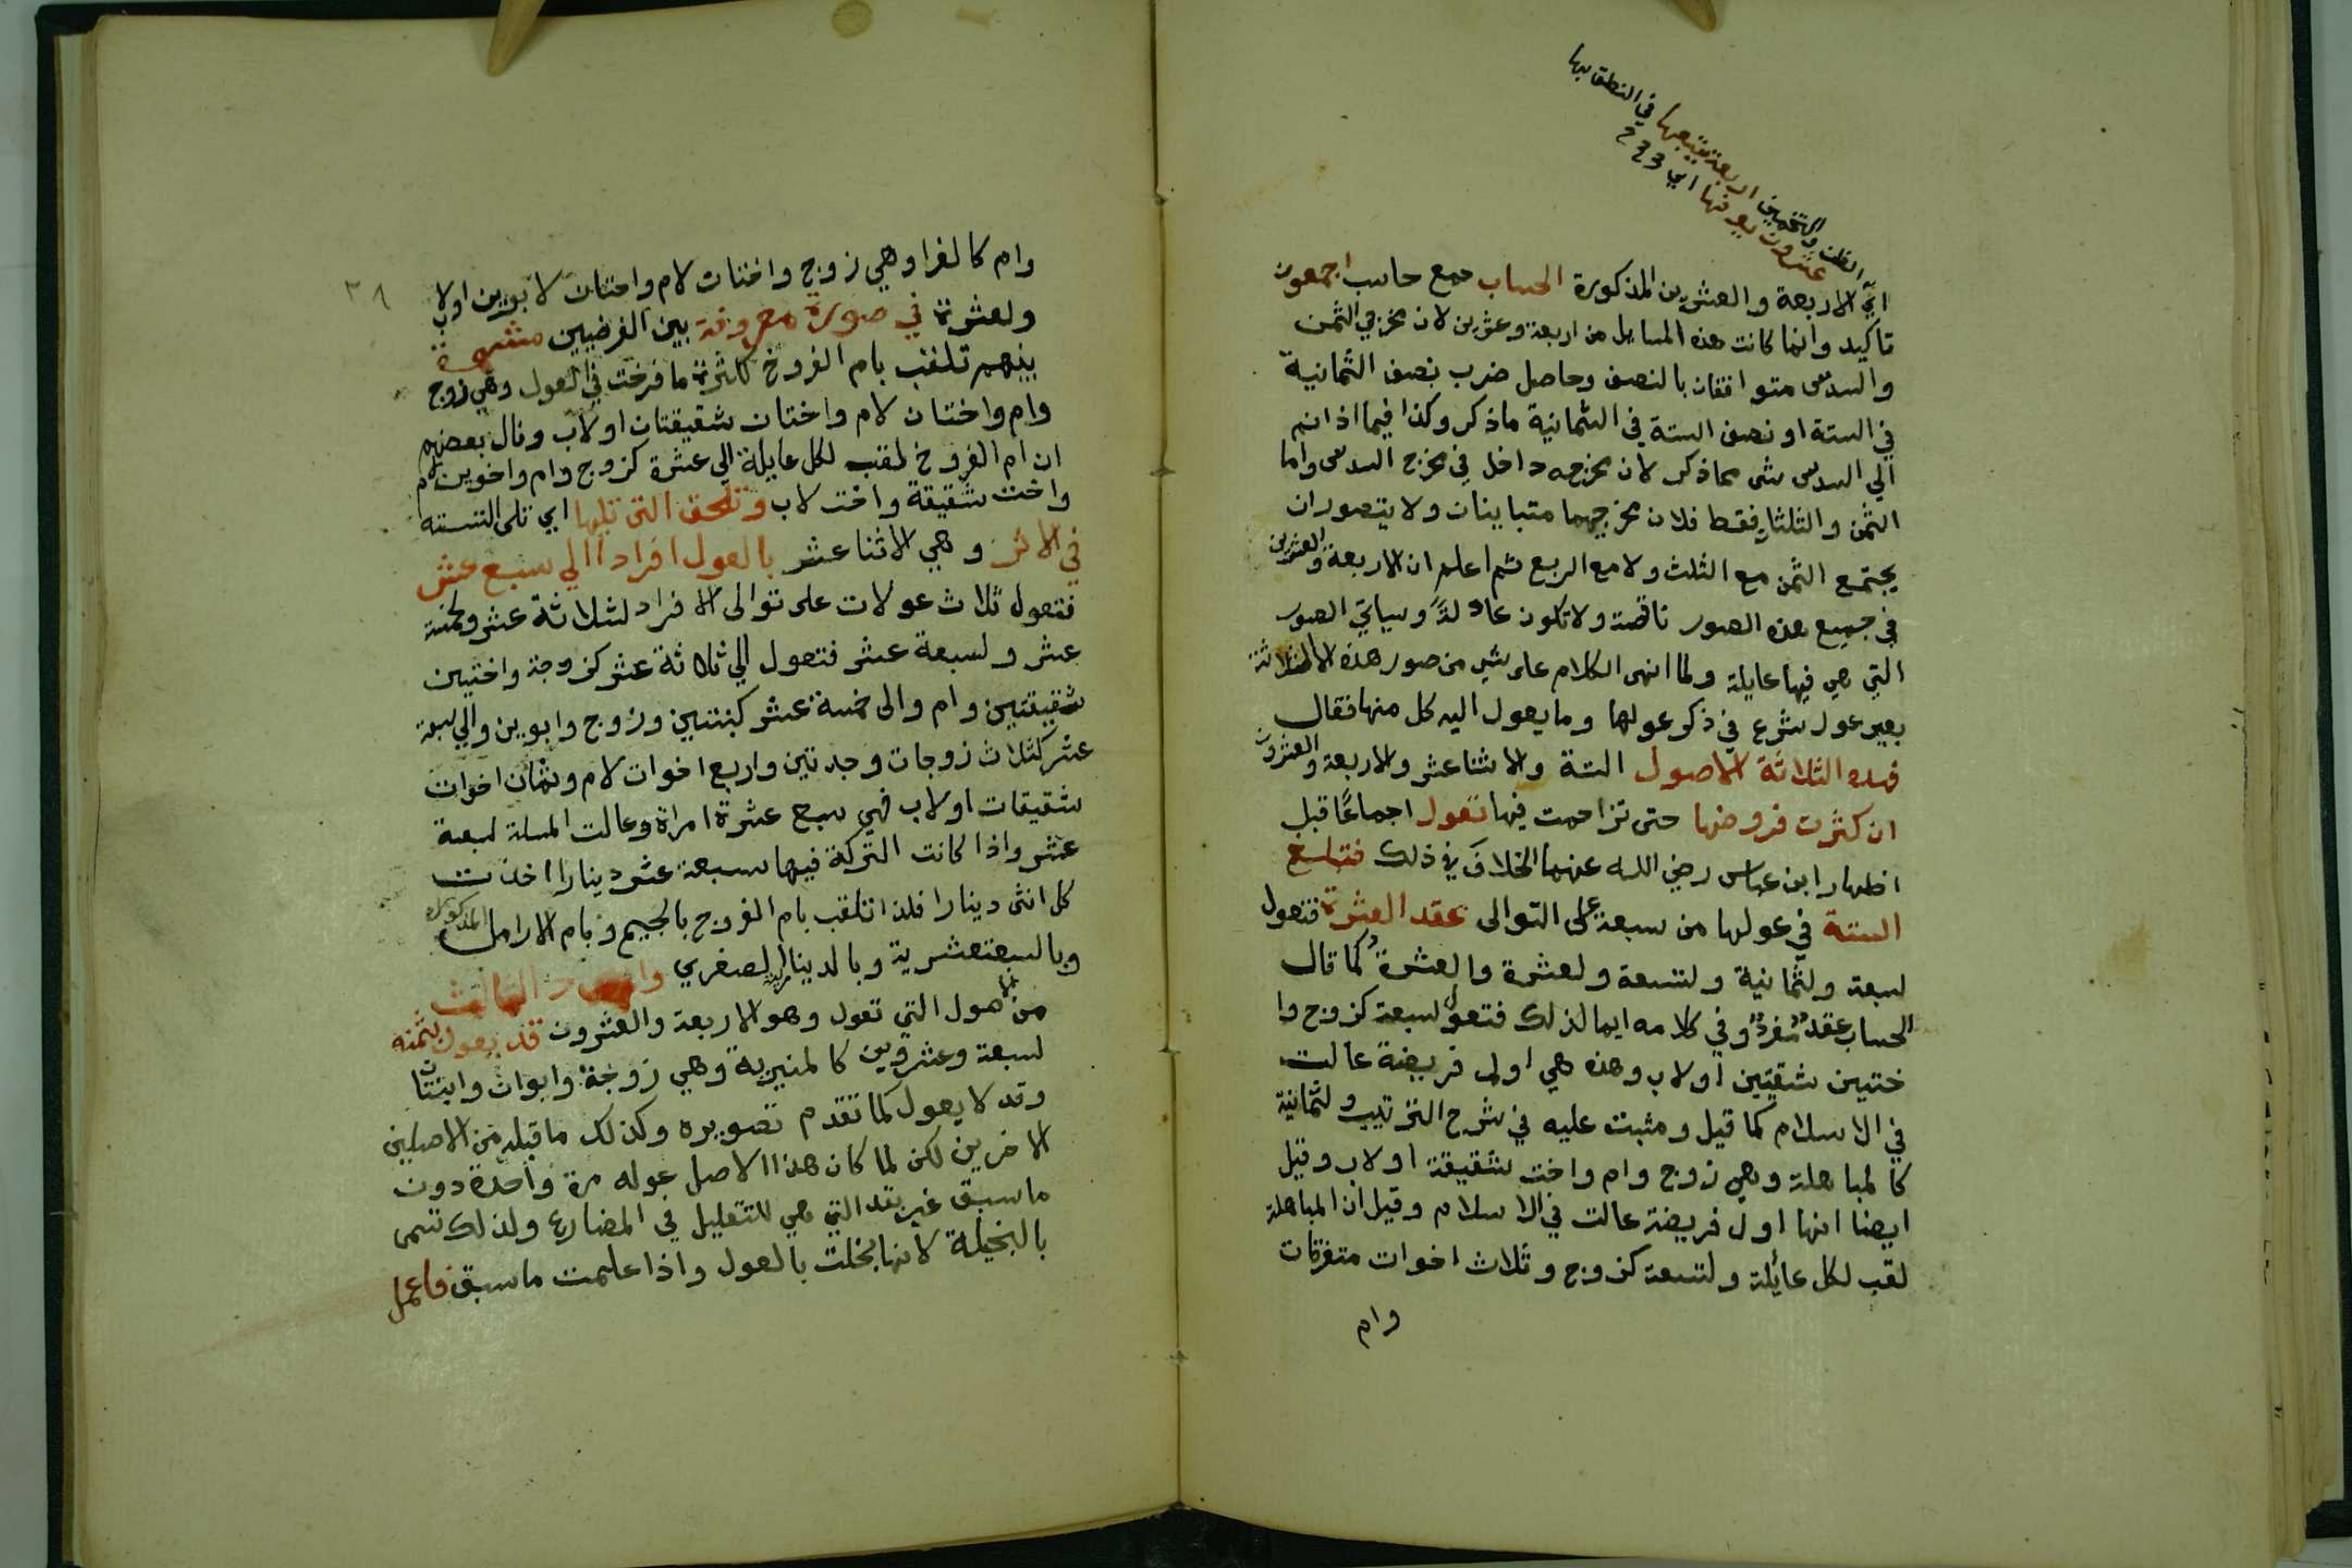 في النطق بها
الظن والتخمين اربعة يتبعها
عشرون يعرفها اي
اي الاربعة والعشرين المذكورة الحساب جمع حاسب اجمعون
تاكيد وانما كانت هذه المسايل من اربعة وعشرين لان مخرجي الثمن
والسدس متوافقان بالنصف وحاصل ضرب نصف الثمانية
في الستة او نصف الستة في الثمانية ماذكر وكذا فيما اذا انضم
الي السدس شي مماذكر لان مخرجه داخل في مخرج السدس واما
الثمن والثلثان فقط فلان مخرجيهما متباينان ولا يتصور ان
يجتمع الثمن مع الثلث ولا مع الربع ثم اعلم ان الاربعة والعشرين
في جميع هذه الصور ناقصة ولا تكون عادلة وسياتي الصور
التي هي فيها عايلة ولما انهى الكلام على شي من صور هذه الثلاثة
بغير عول شرع في ذكر عولها وما يعول اليه كل منها فقال
فهذه الثلاثة الاصول الستة والاثنا عشر والاربعة والعشرون
ان كثرت فروضها حتى تزاحمت فيها تعول اجماعًا قبل
اظهار ابن عباس رضي الله عنهما الخلاف في ذلك فتبلغ
الستة في عولها من سبعة على التوالى عقد العشرة فتعول
لسبعة ولثمانية ولتسعة ولعشرة والعشرة كما قال
الحساب عقد مفرد وفي كلامه ايما لذلك فتعول لسبعة كزوج وا
ختين شقيقتين او لاب وهذه هي اولى فريضة عالت
في الاسلام كما قيل ومثبت عليه في شرح الترتيب ولثمانية
كالمباهلة وهي زوج وام واخت شقيقة او لاب وقيل
ايضا انها اول فريضة عالت في الاسلام وقيل ان المباهلة
لقب لكل عائلة ولتسعة كزوج وثلاث اخوات متفرقات
وام
٣٨
وام كالغرا وهي زوج واختان لام واختان لابوين او لاب
ولعشرة في صورة معروفة بين الفرضيين مشتهرة
بينهم تلقب بام الفروخ لكثرة ما فرخت في العول وهي زوج
وام واختان لام واختان شقيقتان او لاب وقال بعضهم
ان ام الفروخ لقب لكل عايلة الي عشرة كزوج وام واخوين لام
واخت شقيقة واخت لاب وتلحق التي تليها اي تلى الستة
في الاثر وهي الاثنا عشر بالعول افرادا الي سبع عشر
فتعول ثلاث عولات على توالى الافراد لثلاثة عشر ولخمسة
عشر ولسبعة عشر فتعول الي ثلاثة عشر كزوجة واختين
شقيقتين وام والى خمسة عشر كبنتين وزوج وابوين والي سبعة
عشر كثلاث زوجات وجدتين واربع اخوات لام وثمان اخوات
شقيقات او لاب فهي سبع عشرة امراة وعالت المسلة لسبعة
عشر واذا كانت التركة فيها سبعة عشر دينارا اخذت
كل انثى دينارا فلذا تلقب بام الفروج بالجيم وبام الارامل المذكورة
وبالسبعة عشرية وبالدينارية الصغري والعدد الثالث
من الاصول التي تعول وهو الاربعة والعشرون قد يعول بثمنه
لسبعة وعشرين كالمنبرية وهي زوجة وابوان وابنتان
وقد لا يعول كما تقدم تصويره وكذلك ما قبله من الاصلين
الاخرين لكن لما كان هذا الاصل عوله مرة واحدة دون
ماسبق عبر بقد التي هي للتقليل في المضارع ولذلك تسمى
بالبخيلة لانها بخلت بالعول واذا علمت ماسبق فاعمل